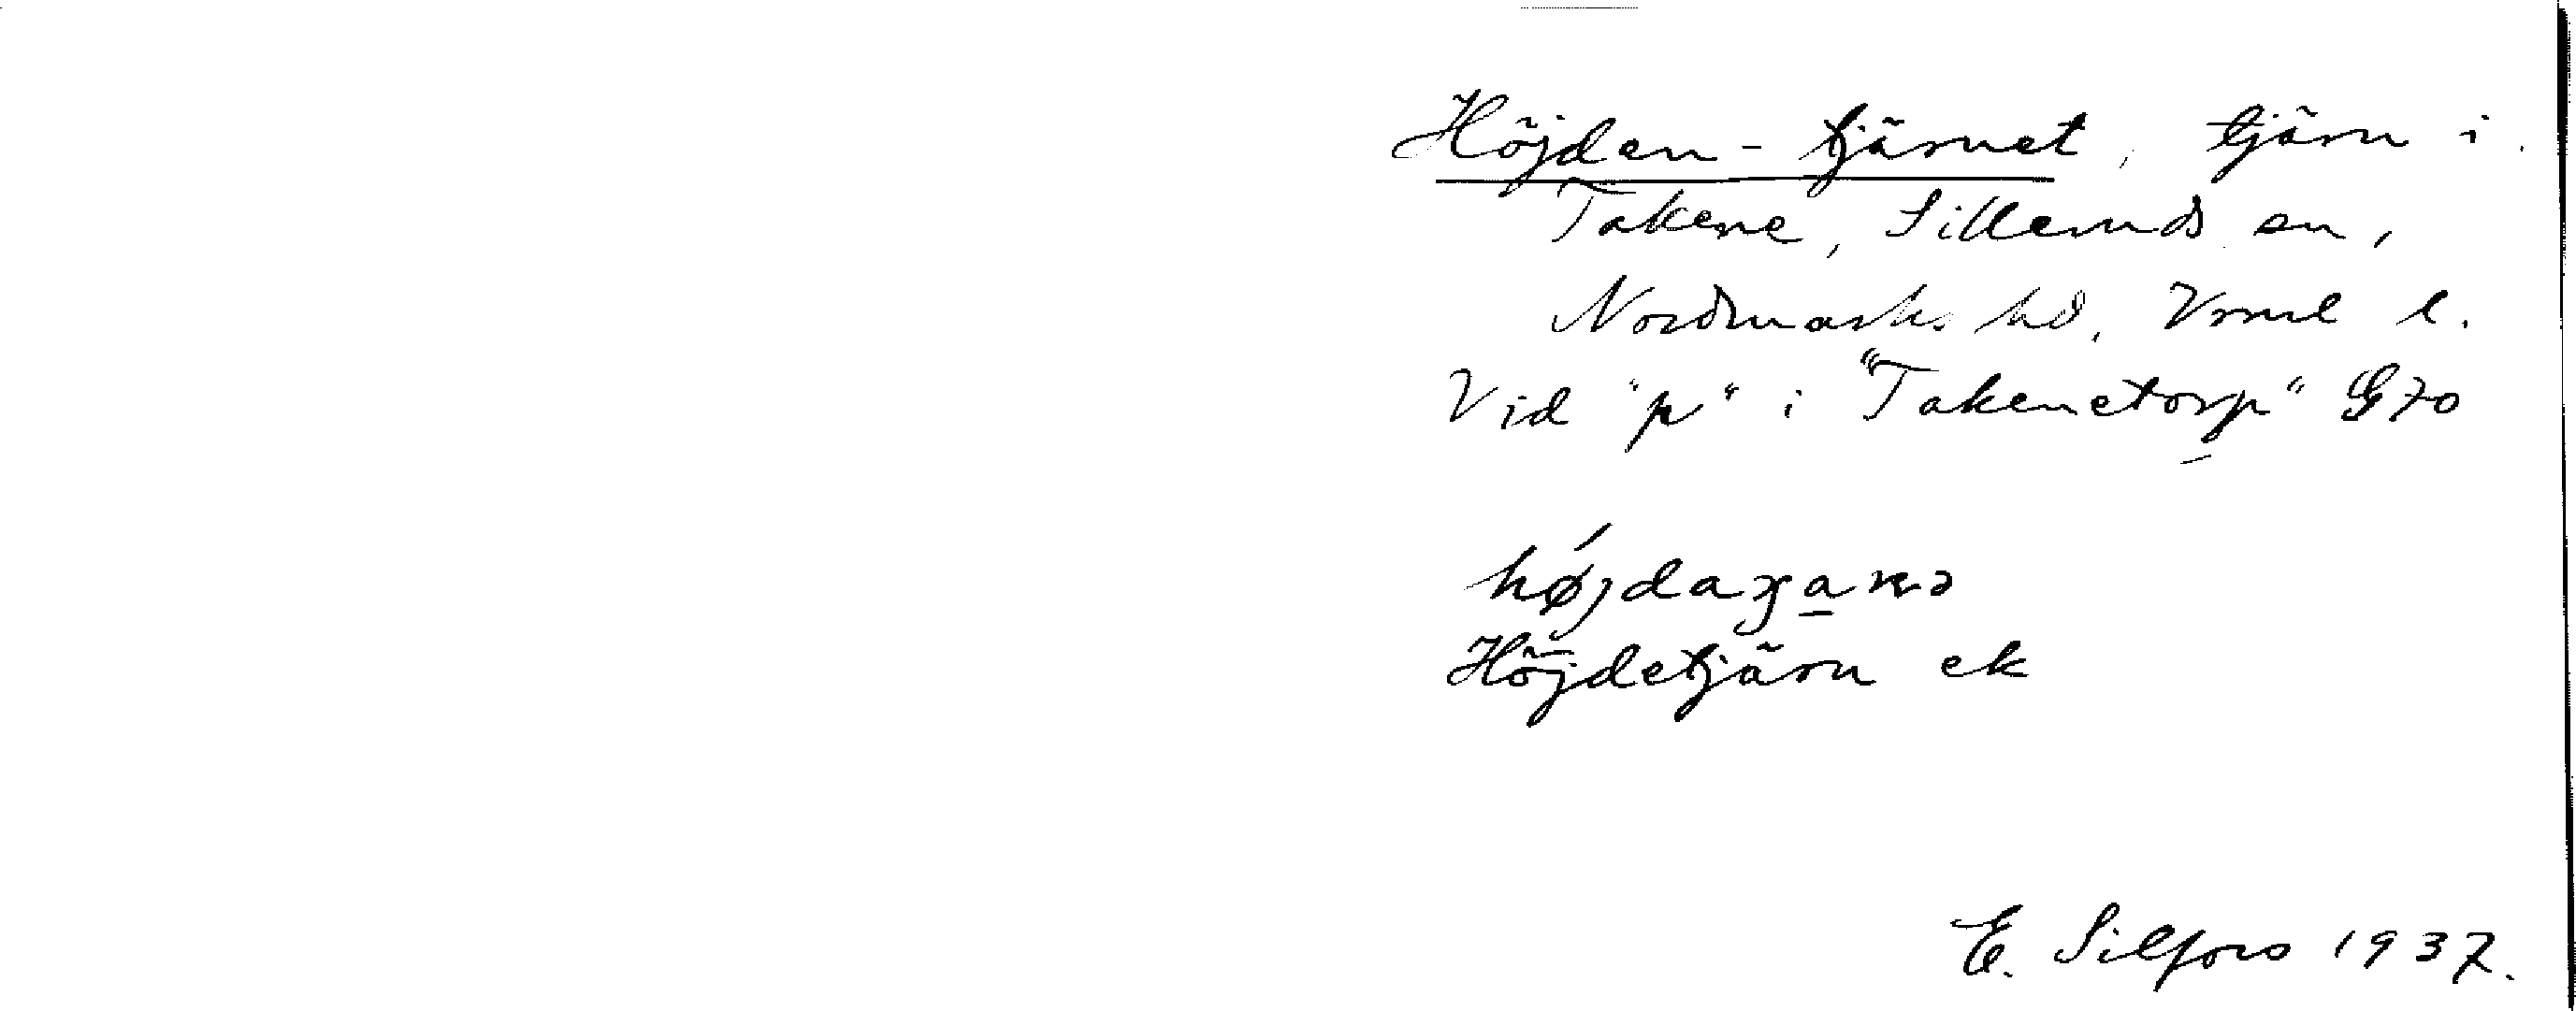 Höjden-tjärnet, tjärn i
Takene, Silleruds sn,
Nordmarks hd, Vrml l.
Vid "p" i "Takenetorp" G70
højdaɟanə
Höjdetjärn ek
E. Silfors 1937.